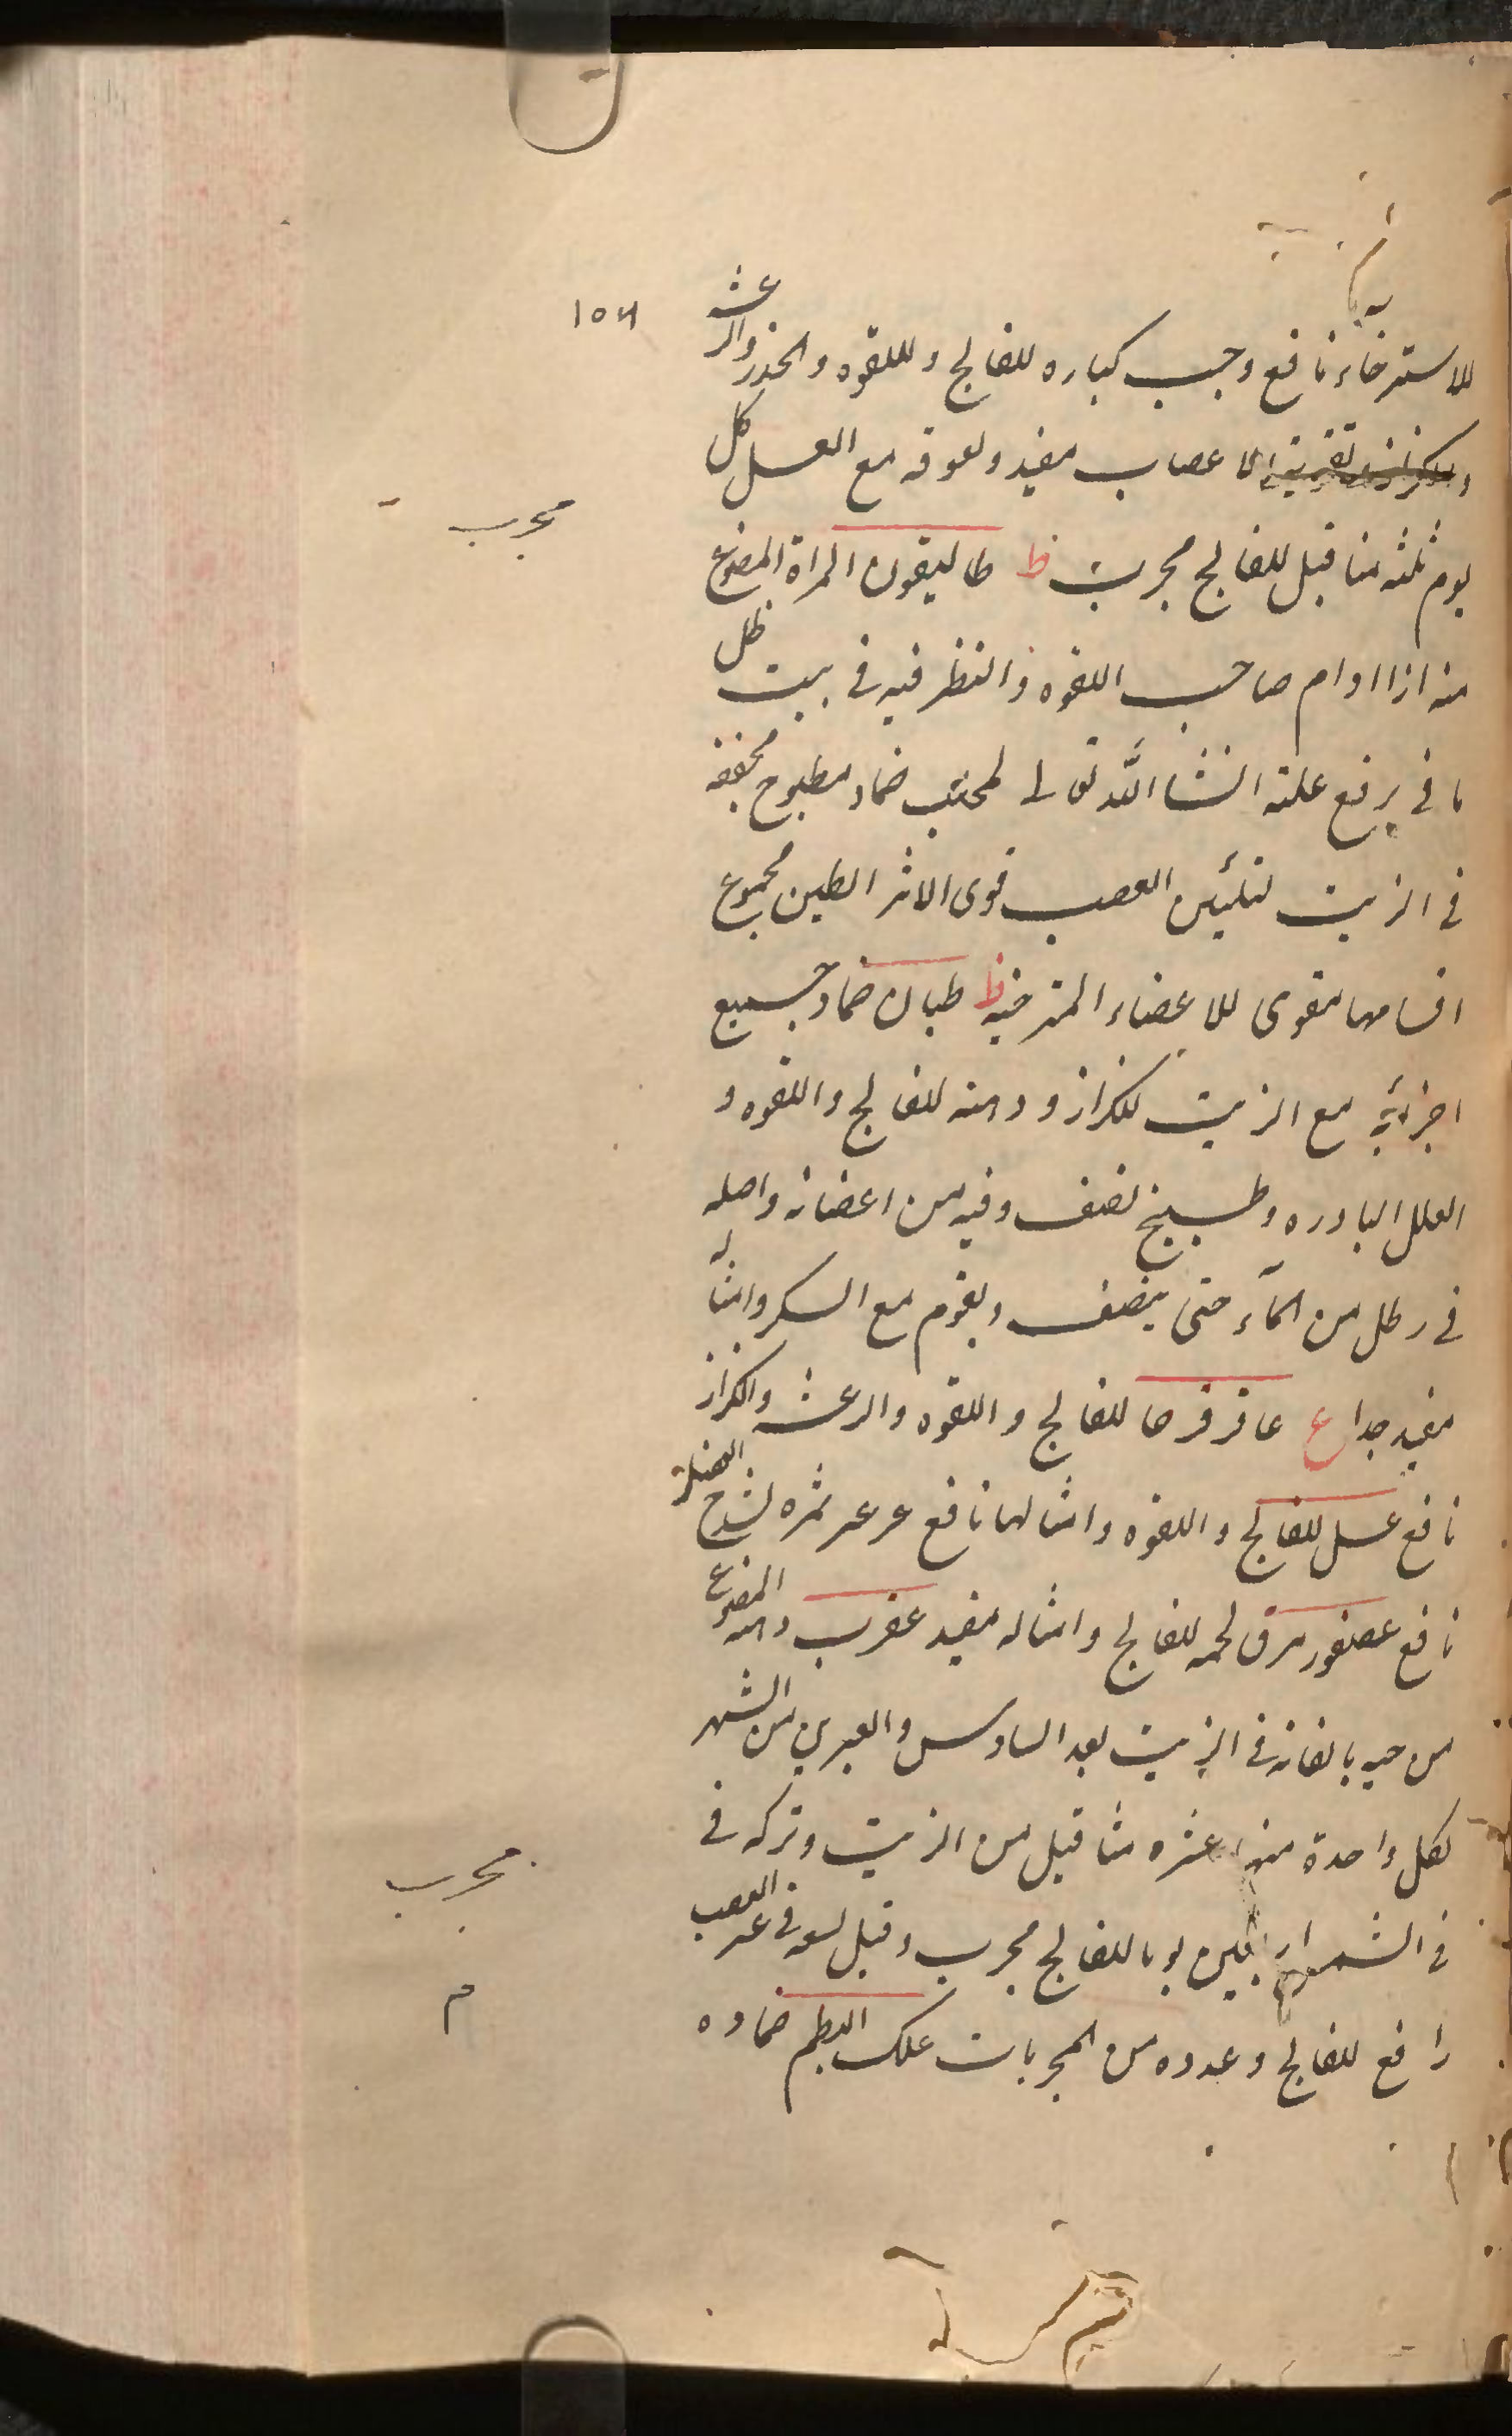 ١٥٦
للاسترخاء نافع وحب كباره للفالج وللقوه والخدر والرعشه
والكزاز وتقويته الاعصاب مفيد ولعوقه مع العسل كل
مجرب
يوم ثلثه مثاقيل للفالج مجرب ط طاليقون المراة المصنوع
منه اذا ادام صاحب اللقوه والنظر فيه في بيت ظل
يا في يرفع علته انشا الله تعالى لمحلب ضماد مطبوخ مجففه
في الزيت لتليين العصب قوى الاثر الطين مجموع
اقسامها مقوى للاعضاء المترخيه ط طباق ضماد جميع
اجزائه مع الزيت للكزاز ودهنه للفالج واللقوه و
العلل البادره وطبيخ نصف وقيه من اعضانه واصله
في رطل من المآء حتى ينصف ويقوم مع السكر وامثاله
مفيد جدا ع عاقرقرحا للفالج واللقوه والرعشه والكزاز
نافع عسل للفالج واللقوه وامثالها نافع عرعر ثمره لشدخ العضله
نافع عصفور مرق لحمه للفالج وامثاله مفيد عقرب دهنه المصنوع
من حيه بالقائه في الزيت بعد السادس والعشرين من الشهر
لكل واحدة منها عشره مثاقيل من الزيت وتركه في
مجرب
في الشمس اربعين يوما للفالج مجرب وقيل لسعه في عصب
م
رافع للفالج وعدوه من المجربات علك البطم ضماده